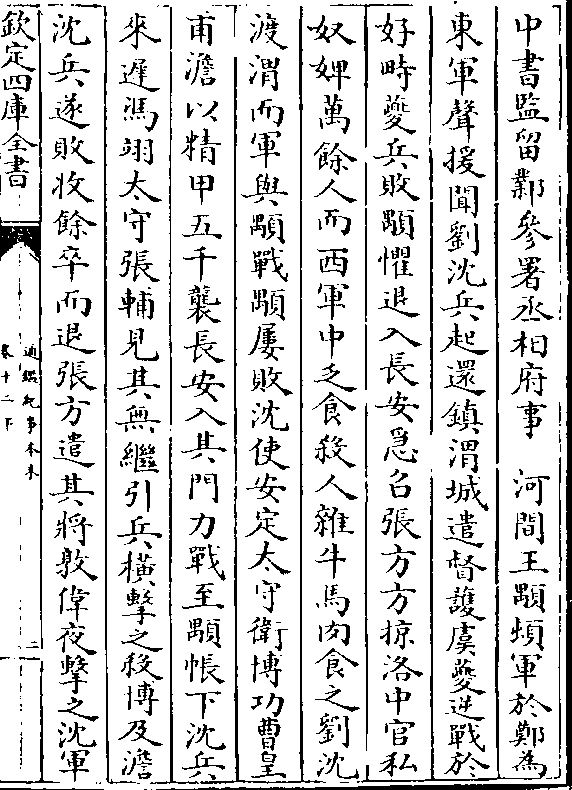 中書監留鄴參署丞相府事　河間王顒頓軍於鄭為
東軍聲援聞劉沈兵起還鎮渭城遣督護虞夔逆戰於
好畤夔兵敗顒懼退入長安急召張方方掠洛中官私
奴婢萬餘人而西軍中乏食殺人雜牛馬肉食之劉沈
渡渭而軍與顒戰顒屢敗沈使安定太守衛博功曹皇
甫澹以精甲五千襲長安入其門力戰至顒帳下沈兵
來遲馮翊太守張輔見其無繼引兵橫擊之殺博及澹
沈兵遂敗收餘卒而退張方遣其將敦偉夜擊之沈軍
欽定四庫全書
通鑑紀事本末
卷十二下
二